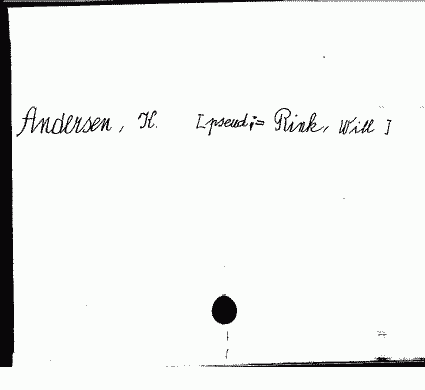 Andersen, H. [pseud;= Rink, Will]